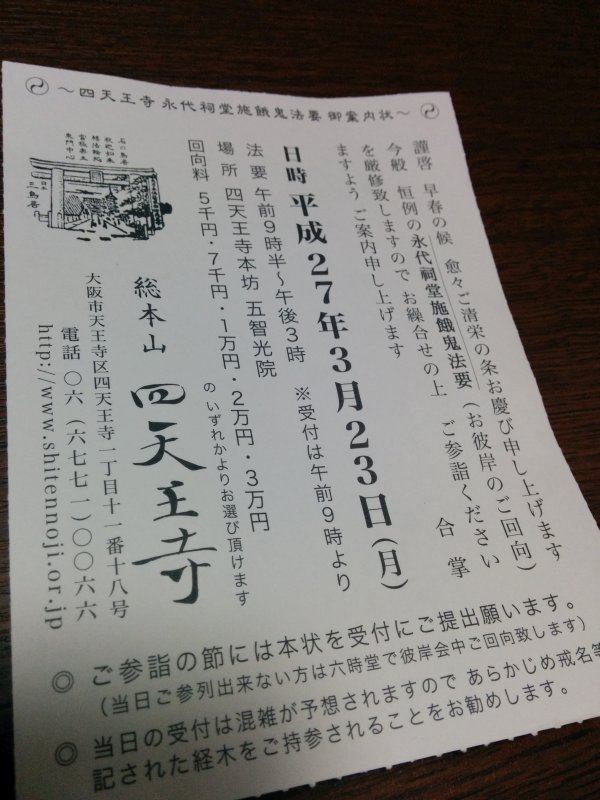 ～四天王寺 永代祠堂施餓鬼法要 御案内状～
謹啓 早春の候 愈々ご清栄の条お慶び申し上げます
今般 恒例の永代祠堂施餓鬼法要（お彼岸のご回向）
を厳修致しますので お繰合せの上 ご参詣ください
ますよう ご案内申し上げます 合掌
日時 平成27年3月23日(月)
法要 午前9時半～午後3時 ※受付は午前9時より
場所 四天王寺本坊 五智光院
回向料 5千円・7千円・1万円・2万円・3万円
のいずれかよりお選び頂けます
石の鳥居
釈迦如来
転法輪処
当極楽土
東門中心
日本
三鳥居
総本山 四天王寺
大阪市天王寺区四天王寺一丁目十一番十八号
電話 〇六（六七七一）〇〇六六
http://www.shitennoji.or.jp
◎ ご参詣の節には本状を受付にご提出願います。
（当日ご参列出来ない方は六時堂で彼岸会中ご回向致します）
◎ 当日の受付は混雑が予想されますので あらかじめ戒名等
記された経木をご持参されることをお勧めします。